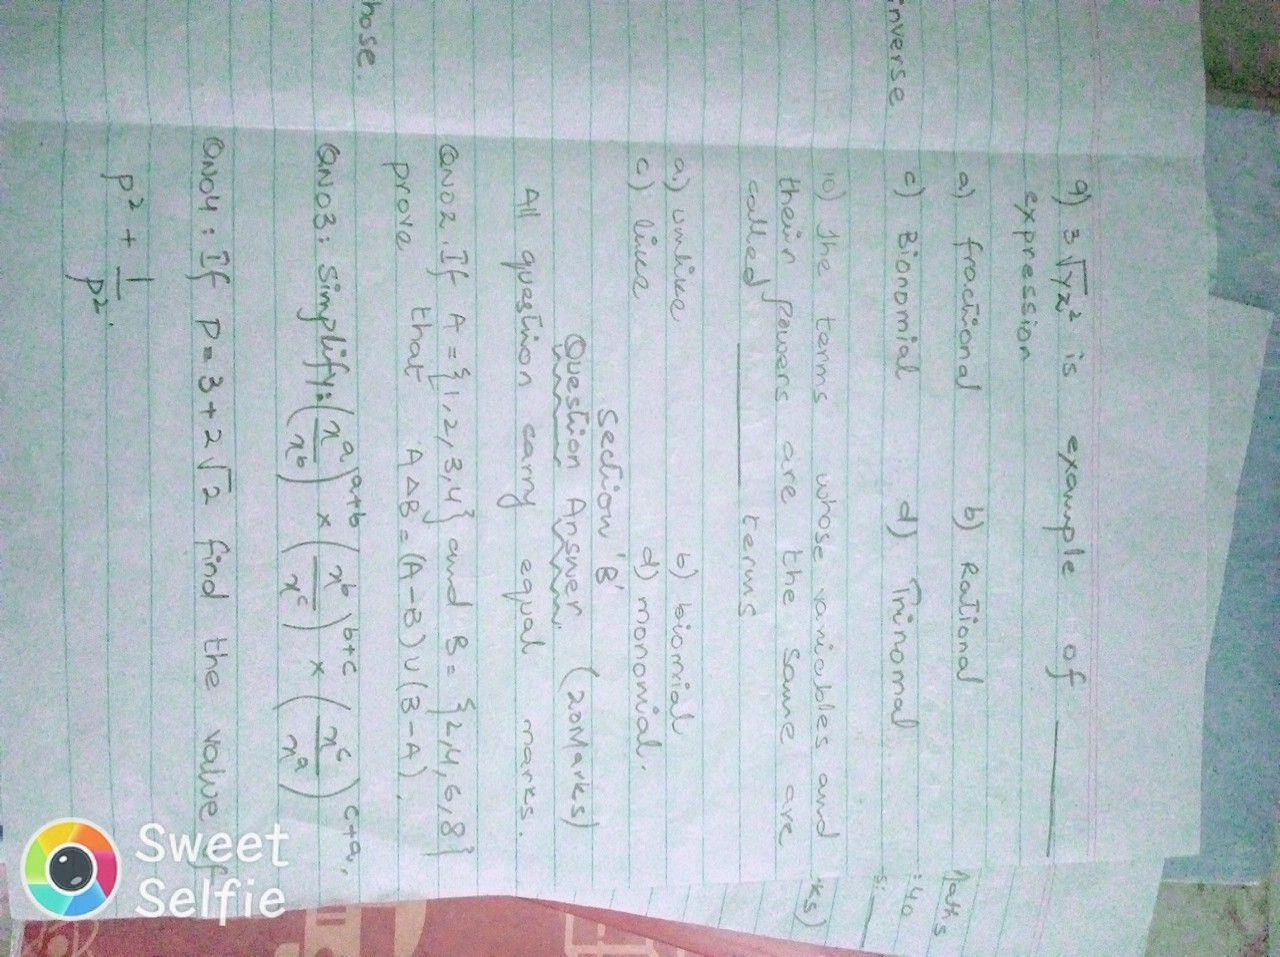 9) 3√yz² is example of ______
expression
a) fractional b) Rational
c) Bionomial d) Trinomal
inverse
Maths
: 40
s: ___
ks)
10) The terms whose variables and
their powers are the same are
called ______ terms
a) unlike b) biomial
c) like d) monomial.
Section 'B'
Question Answer. (20Marks)
All question carry equal marks.
QNO2. If A = {1,2,3,4} and B = {2,4,6,8}
prove that A△B = (A-B)∪(B-A).
hose.
QNO3: Simplify: (xᵃ/xᵇ)ᵃ⁺ᵇ × (xᵇ/xᶜ)ᵇ⁺ᶜ × (xᶜ/xᵃ)ᶜ⁺ᵃ.
QNO4: If P = 3+2√2 find the value of
p² + 1/p².
Sweet
Selfie